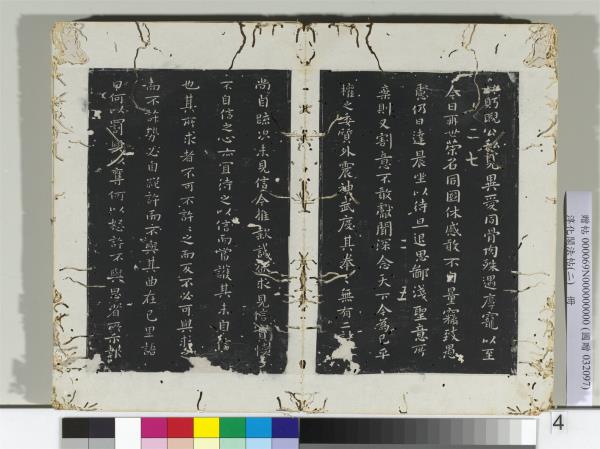 盻睨公私見異愛同骨肉殊遇厚寵以至
二七
今日再世榮名同國休慼敢不自量竊致愚
慮仍日達晨坐以待旦退思鄙淺聖意所
棄則又割意不敢獻聞深念天下今為已平
權之委質外震神武度其拳々無有二
尚自疏況未見信今推款誠欲求見信實
不自信之心亦宜待之以信而當護其未自信
也其所求者不可不許々之而反不必可與求
而不許勢必自絕許而不與其曲在己里語
曰何以罰與以奪何以怒許不與思省所示報
贈帖 000069N000000000 (國贈 032097)
淳化閣法帖(二) 冊
4